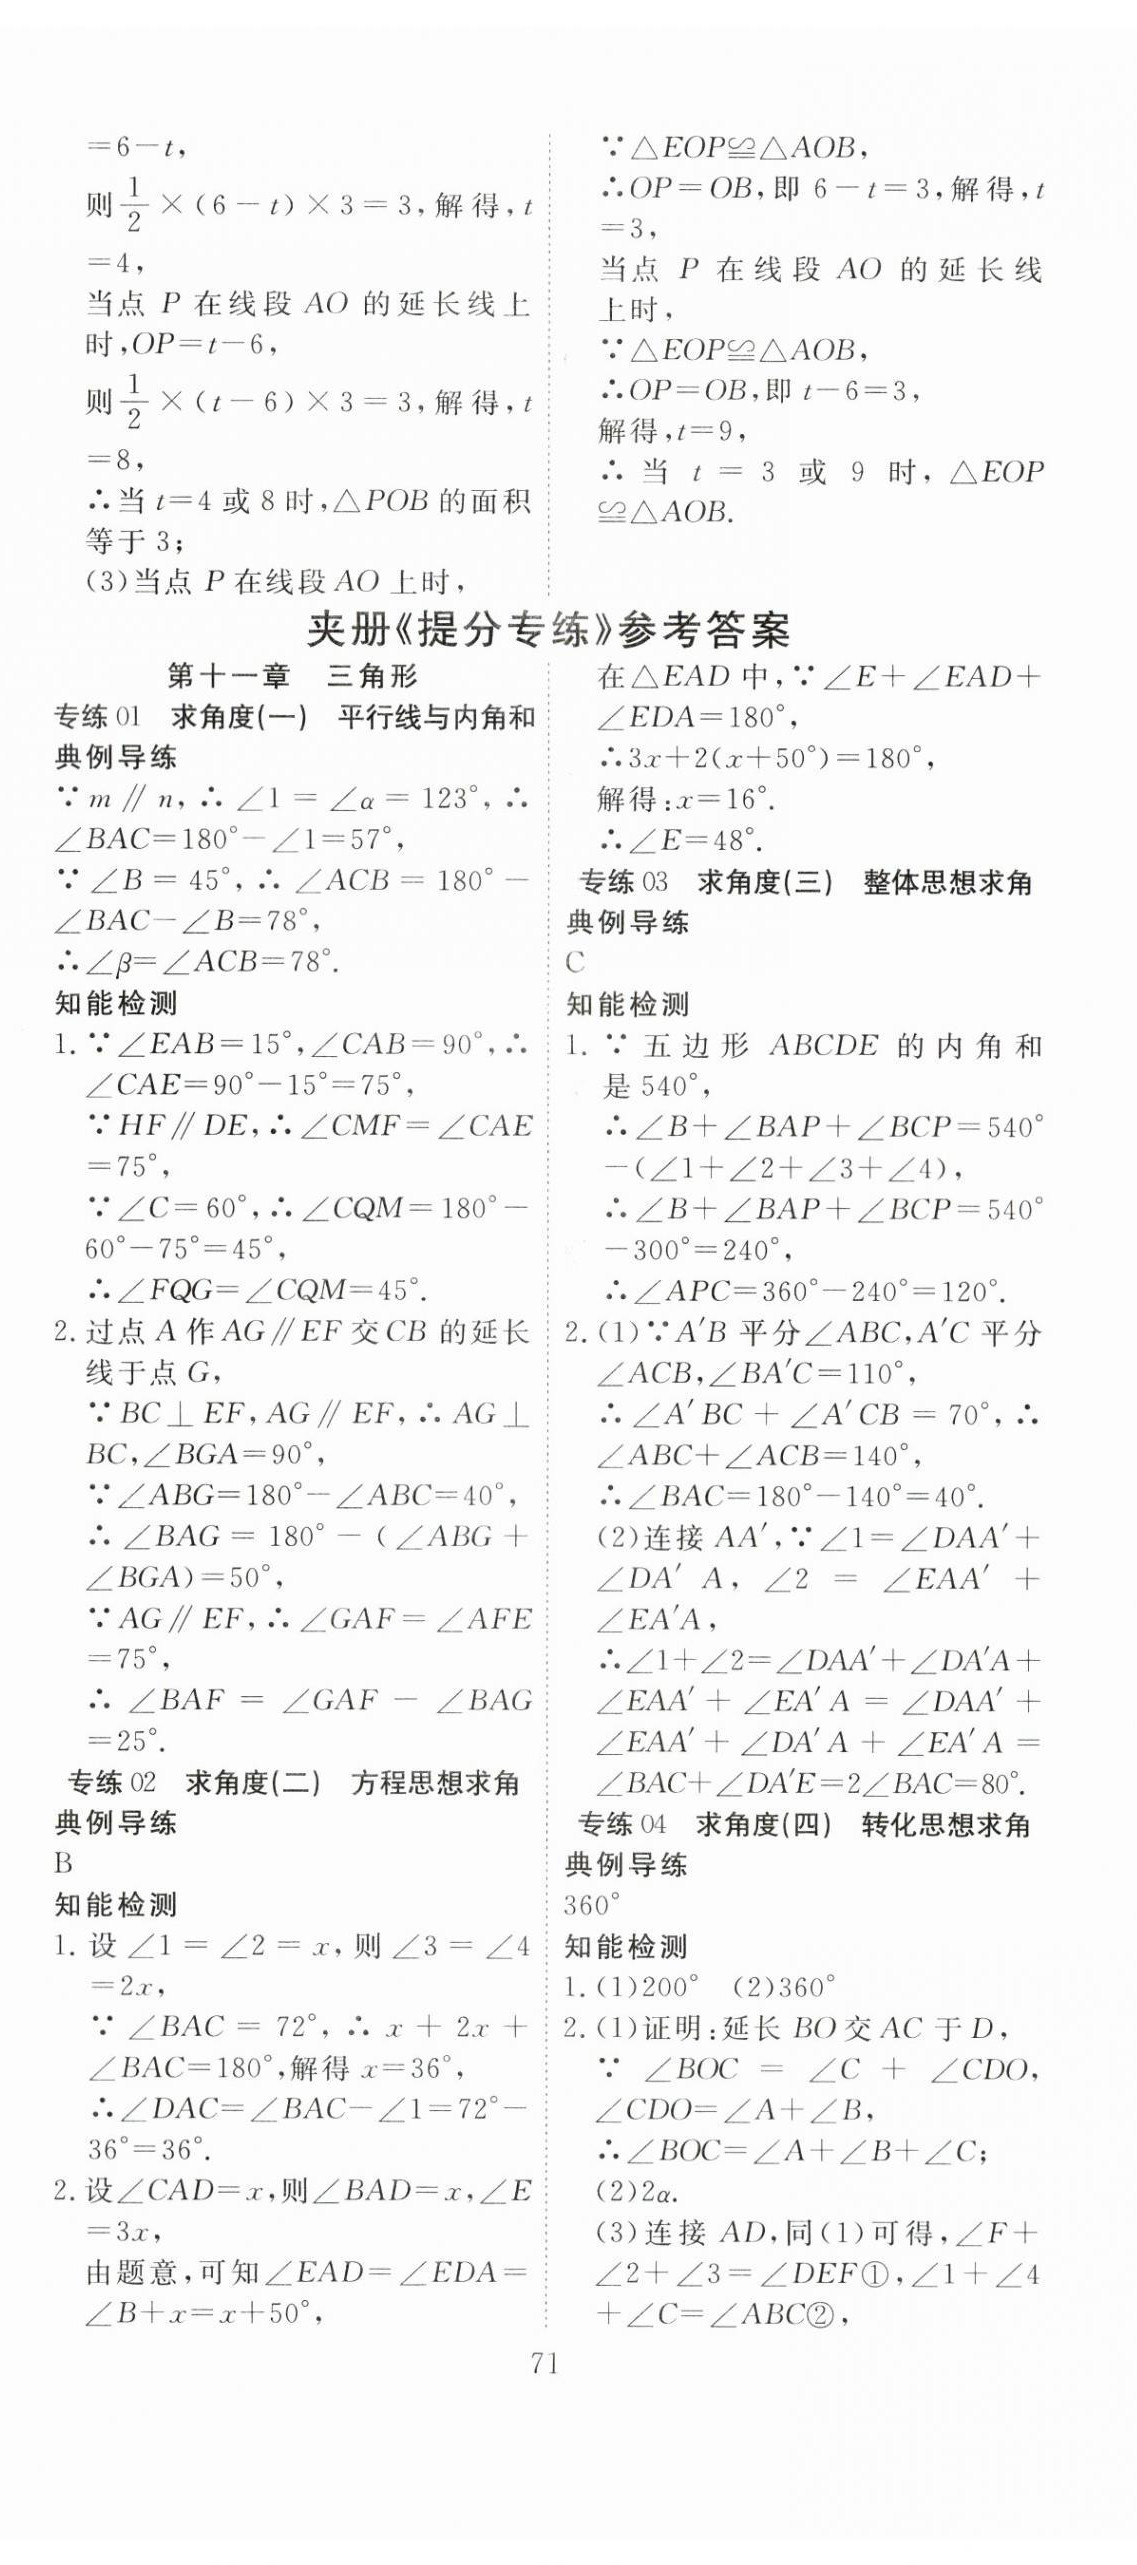 =6－t，
则1/2×(6－t)×3=3，解得，t
=4，
当点 P 在线段 AO 的延长线上
时，OP=t－6，
则1/2×(t－6)×3=3，解得，t
=8，
∴当 t=4 或 8 时，△POB 的面积
等于 3；
(3)当点 P 在线段 AO 上时，
∵△EOP≌△AOB，
∴OP=OB，即 6－t=3，解得，t
=3，
当点 P 在线段 AO 的延长线
上时，
∵△EOP≌△AOB，
∴OP=OB，即 t－6=3，
解得，t=9，
∴ 当 t = 3 或 9 时，△EOP
≌△AOB.
夹册《提分专练》参考答案
第十一章 三角形
专练 01 求角度(一) 平行线与内角和
典例导练
∵m∥n，∴∠1=∠α=123°，∴
∠BAC=180°－∠1=57°，
∵∠B=45°，∴∠ACB=180°－
∠BAC－∠B=78°，
∴∠β=∠ACB=78°.
知能检测
1. ∵∠EAB=15°，∠CAB=90°，∴
∠CAE=90°－15°=75°，
∵HF∥DE，∴∠CMF=∠CAE
=75°，
∵∠C=60°，∴∠CQM=180°－
60°－75°=45°，
∴∠FQG=∠CQM=45°.
2. 过点 A 作 AG∥EF 交 CB 的延长
线于点 G，
∵BC⊥EF，AG∥EF，∴AG⊥
BC，∠BGA=90°，
∵∠ABG=180°－∠ABC=40°，
∴∠BAG=180°－(∠ABG＋
∠BGA)=50°，
∵AG∥EF，∴∠GAF=∠AFE
=75°，
∴∠BAF=∠GAF－∠BAG
=25°.
专练 02 求角度(二) 方程思想求角
典例导练
B
知能检测
1. 设∠1=∠2=x，则∠3=∠4
=2x，
∵∠BAC=72°，∴x＋2x＋
∠BAC=180°，解得 x=36°，
∴∠DAC=∠BAC－∠1=72°－
36°=36°.
2. 设∠CAD=x，则∠BAD=x，∠E
=3x，
由题意，可知∠EAD=∠EDA=
∠B＋x=x＋50°，
在△EAD 中，∵∠E＋∠EAD＋
∠EDA=180°，
∴3x＋2(x＋50°)=180°，
解得：x=16°.
∴∠E=48°.
专练 03 求角度(三) 整体思想求角
典例导练
C
知能检测
1. ∵五边形 ABCDE 的内角和
是 540°，
∴∠B＋∠BAP＋∠BCP=540°
－(∠1＋∠2＋∠3＋∠4)，
∴∠B＋∠BAP＋∠BCP=540°
－300°=240°，
∴∠APC=360°－240°=120°.
2. (1)∵A′B 平分∠ABC，A′C 平分
∠ACB，∠BA′C=110°，
∴∠A′BC＋∠A′CB=70°，∴
∠ABC＋∠ACB=140°，
∴∠BAC=180°－140°=40°.
(2)连接 AA′，∵∠1=∠DAA′＋
∠DA′A，∠2=∠EAA′＋
∠EA′A，
∴∠1＋∠2=∠DAA′＋∠DA′A＋
∠EAA′＋∠EA′A=∠DAA′＋
∠EAA′＋∠DA′A＋∠EA′A=
∠BAC＋∠DA′E=2∠BAC=80°.
专练 04 求角度(四) 转化思想求角
典例导练
360°
知能检测
1. (1)200° (2)360°
2. (1)证明：延长 BO 交 AC 于 D，
∵∠BOC=∠C＋∠CDO，
∠CDO=∠A＋∠B，
∴∠BOC=∠A＋∠B＋∠C；
(2)2α.
(3)连接 AD，同(1)可得，∠F＋
∠2＋∠3=∠DEF①，∠1＋∠4
＋∠C=∠ABC②，
71